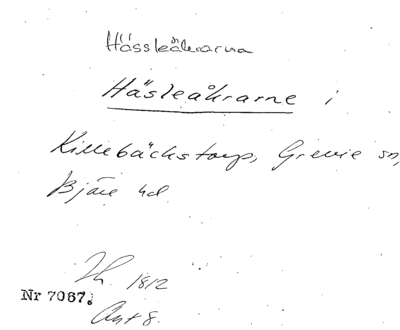 Hässleåkrarna
Häsleåkrarne i
Killebäckstorp, Grevie sn,
Bjäre hd
1812
Nr 7087.
Akt 8.